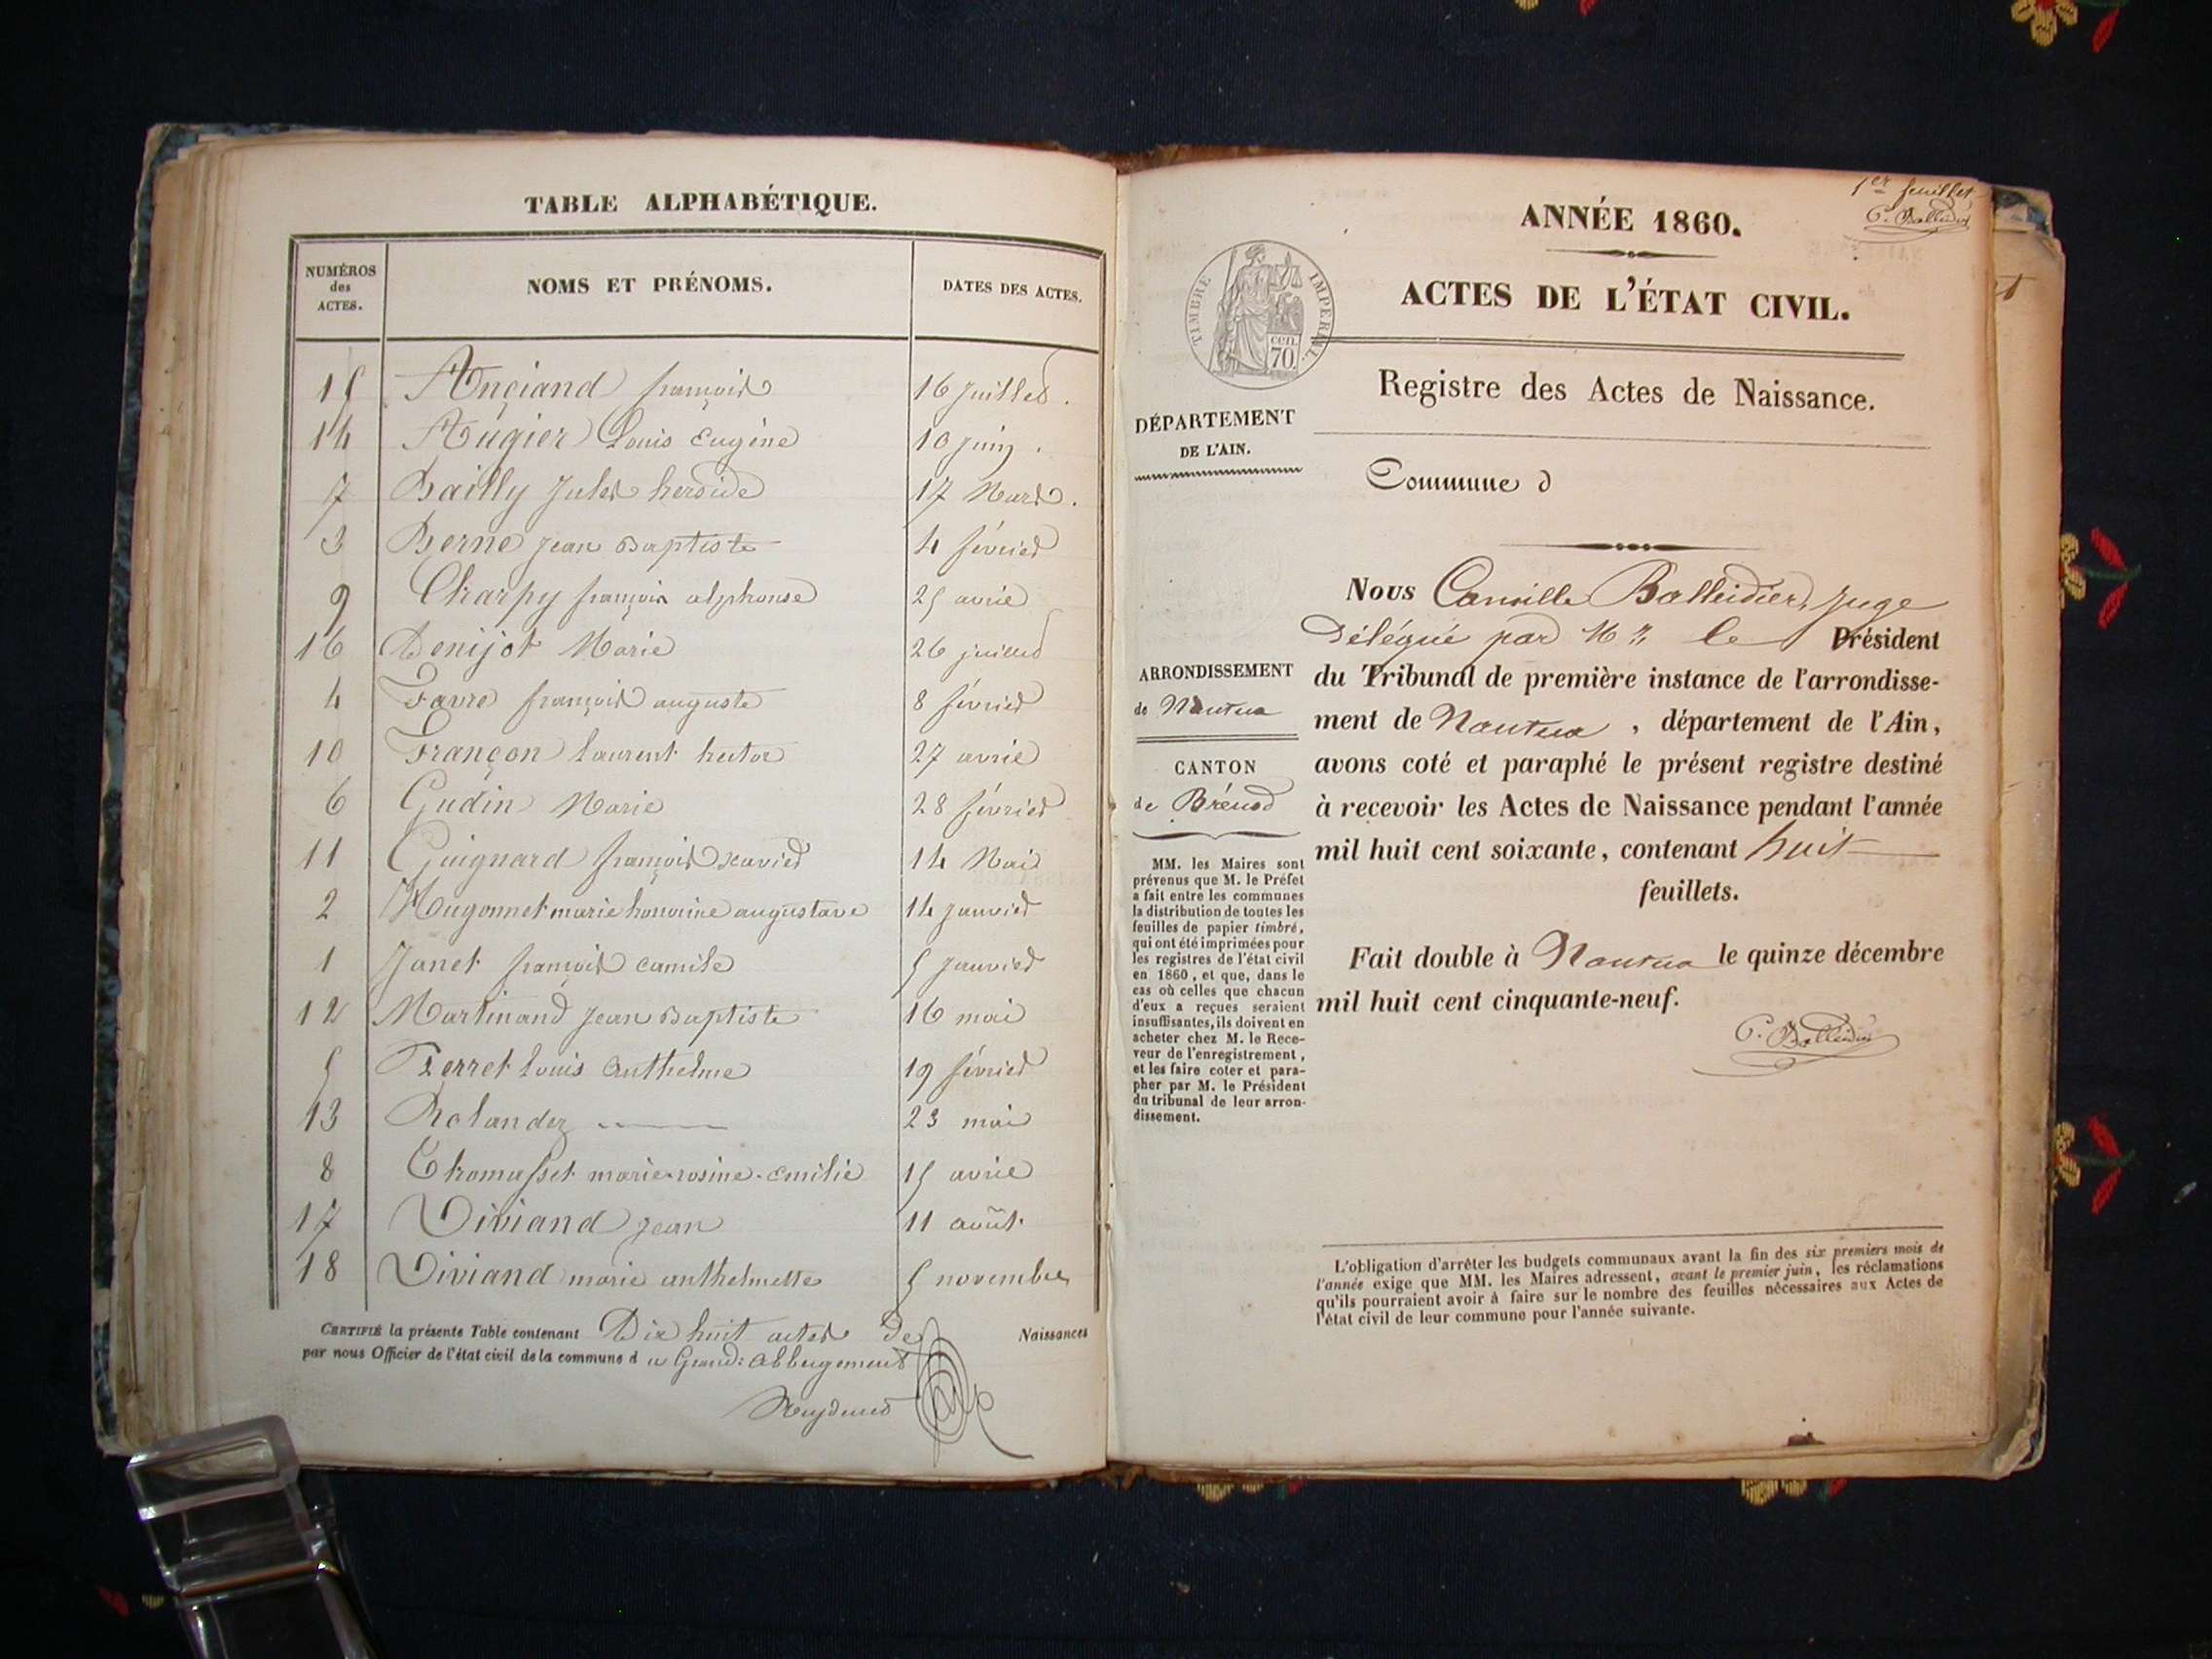 TABLE ALPHABÉTIQUE.
NUMÉROS
des
ACTES.
NOMS ET PRÉNOMS.
DATES DES ACTES.
15 Anciand françois 16 Juillet.
14 Augier Louis Eugène 10 Juin.
7 Bailly Jules 17 Mars.
3 Berne Jean Baptiste 4 février
9 Charpy françois alphonse 25 avril
16 Denijot Marie 26 juillet
4 Favre françois auguste 8 février
10 Françon Laurent hector 27 avril
6 Gudin Marie 28 février
11 Guignard françois xavier 14 Mai
2 Hugonnet marie honorine 14 janvier
1 Janet françois camile 5 Janvier
12 Martinand Jean Baptiste 16 mai
5 Perret Louis Anthelme 19 février
13 Rolandez 23 mai
8 Thomasset marie-rosine-Emilie 15 avril
17 Viviand Jean 11 août
18 Viviand marie anthelmette 5 novembre
CERTIFIÉ la présente Table contenant Dix huit actes de Naissances
par nous Officier de l'état civil de la commune d u Grand: Abbergement
1er feuillet
C. Balleidier
ANNÉE 1860.
ACTES DE L'ÉTAT CIVIL.
TIMBRE IMPERIAL
CEN.
70.
Registre des Actes de Naissance.
DÉPARTEMENT
DE L'AIN.
Commune d
Nous Camille Balleidier, Juge
Délégué par Mr. le Président
du Tribunal de première instance de l'arrondisse-
ment de Nantua, département de l'Ain,
avons coté et paraphé le présent registre destiné
à recevoir les Actes de Naissance pendant l'année
mil huit cent soixante, contenant huit
feuillets.
Fait double à Nantua le quinze décembre
mil huit cent cinquante-neuf.
C. Balleidier
ARRONDISSEMENT
de Nantua
CANTON
de Brénod
MM. les Maires sont
prévenus que M. le Préfet
a fait entre les communes
la distribution de toutes les
feuilles de papier timbré,
qui ont été imprimées pour
les registres de l'état civil
en 1860, et que, dans le
cas où celles que chacun
d'eux a reçues seraient
insuffisantes, ils doivent en
acheter chez M. le Rece-
veur de l'enregistrement,
et les faire coter et para-
pher par M. le Président
du tribunal de leur arron-
dissement.
L'obligation d'arrêter les budgets communaux avant la fin des six premiers mois de
l'année exige que MM. les Maires adressent, avant le premier juin, les réclamations
qu'ils pourraient avoir à faire sur le nombre des feuilles nécessaires aux Actes de
l'état civil de leur commune pour l'année suivante.